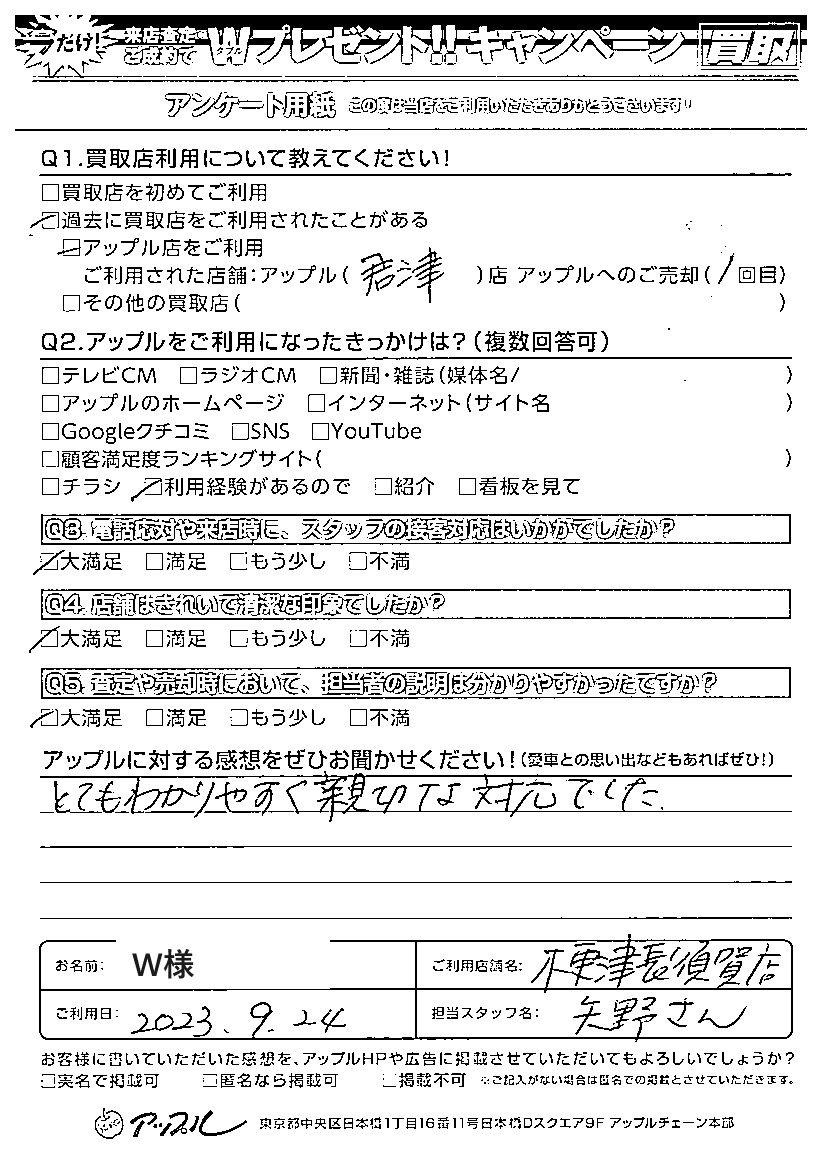 だけ! 来店査定・ご成約で Wプレゼント!!キャンペーン 買取
アンケート用紙 この度は当店をご利用いただきありがとうございます!!
Q1.買取店利用について教えてください!
□買取店を初めてご利用
☑過去に買取店をご利用されたことがある
☑アップル店をご利用
ご利用された店舗:アップル( 君津 )店 アップルへのご売却( 1回目)
□その他の買取店( )
Q2.アップルをご利用になったきっかけは?(複数回答可)
□テレビCM □ラジオCM □新聞・雑誌(媒体名/ )
□アップルのホームページ □インターネット(サイト名 )
□Googleクチコミ □SNS □YouTube
□顧客満足度ランキングサイト( )
□チラシ ☑利用経験があるので □紹介 □看板を見て
Q3.電話応対や来店時に、スタッフの接客対応はいかがでしたか?
☑大満足 □満足 □もう少し □不満
Q4.店舗はきれいで清潔な印象でしたか?
☑大満足 □満足 □もう少し □不満
Q5.査定や売却時において、担当者の説明は分かりやすかったですか?
☑大満足 □満足 □もう少し □不満
アップルに対する感想をぜひお聞かせください!(愛車との思い出などもあればぜひ!)
とてもわかりやすく親切な対応でした.
お名前: W様 ご利用店舗名: 木更津長須賀店
ご利用日: 2023.9.24 担当スタッフ名: 矢野さん
お客様に書いていただいた感想を、アップルHPや広告に掲載させていただいてもよろしいでしょうか?
□実名で掲載可 □匿名なら掲載可 □掲載不可 ※ご記入がない場合は匿名での掲載とさせていただきます。
アップル 東京都中央区日本橋1丁目16番11号日本橋Dスクエア9F アップルチェーン本部